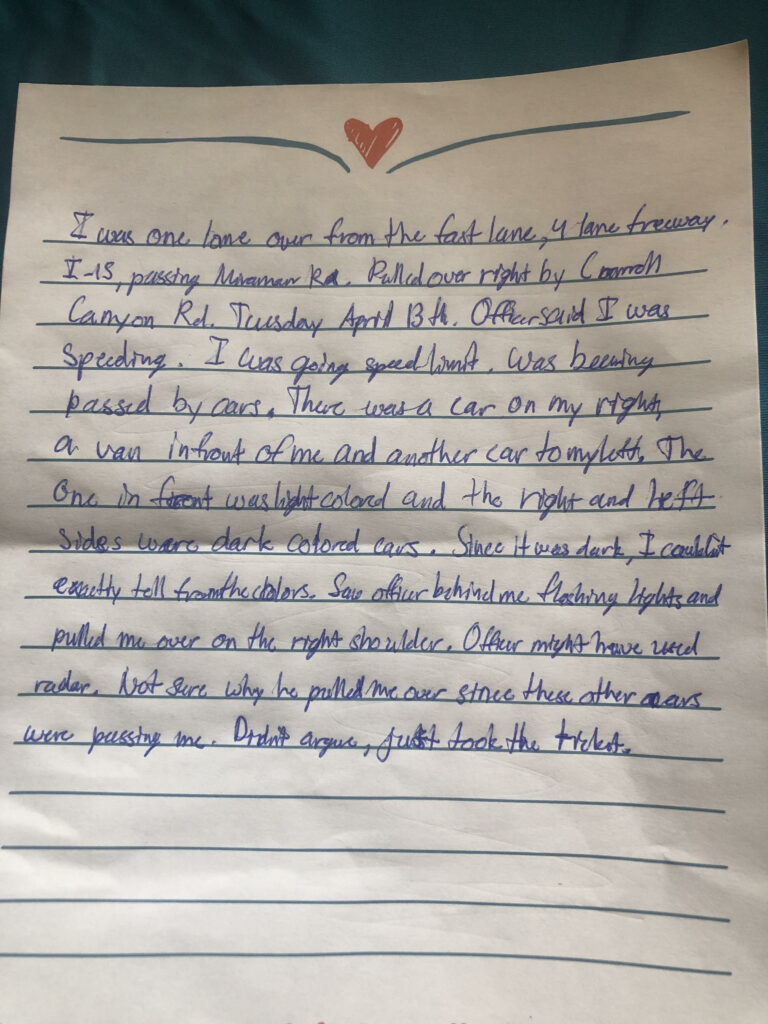 I was one lane over from the fast lane, 4 lane freeway.
I-15, passing Miramar Rd. Pulled over right by Carroll
Canyon Rd. Tuesday April 13th. Officer said I was
speeding. I was going speed limit. Was beening
passed by cars. There was a car on my right,
a van infront of me and another car to my left. The
one in front was light colored and the right and left
sides were dark colored cars. Since it was dark, I couldn't
exactly tell from the colors. Saw officer behind me flashing lights and
pulled me over on the right shoulder. Officer might have used
radar. Not sure why he pulled me over since these other cars
were passing me. Didn't argue, just took the ticket.